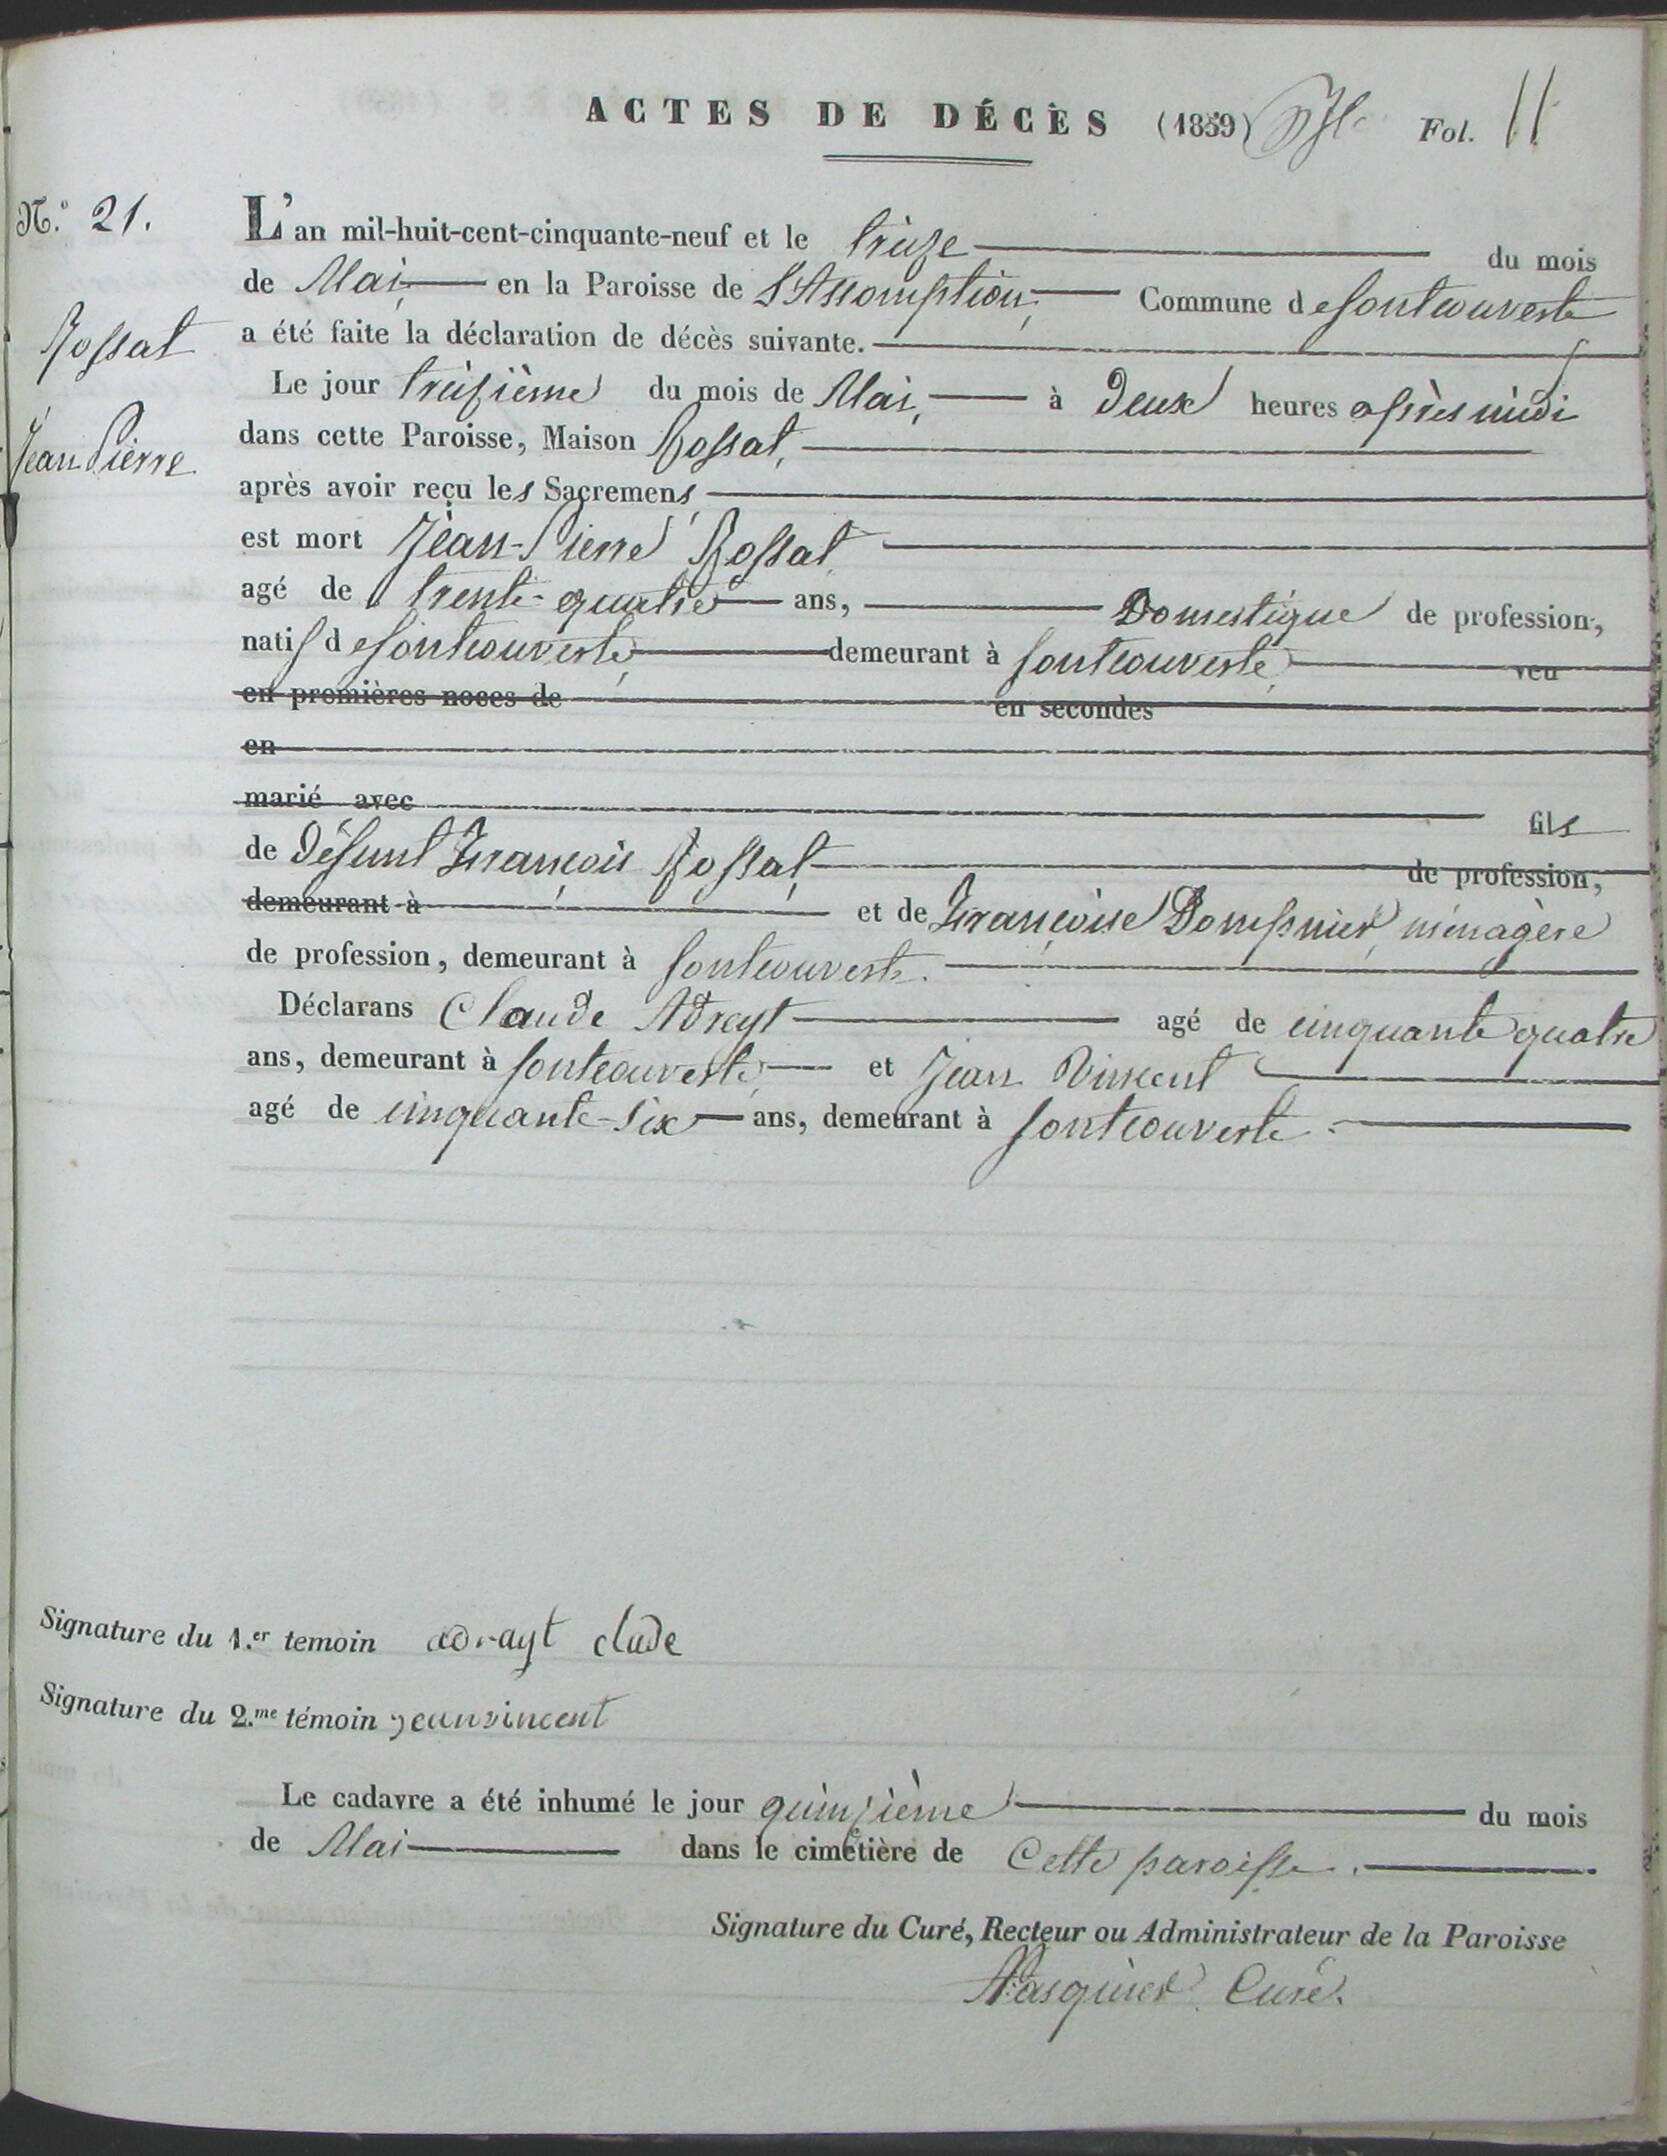 ACTES DE DÉCÈS (1859) Fol. 11
N.º 21.
L'an mil-huit-cent-cinquante-neuf et le treize du mois
de Mai, en la Paroisse de L'Assomption, Commune de fontcouverte
Rossat
a été faite la déclaration de décès suivante.
Le jour treizième du mois de Mai, à Deux heures après midi
Jean Pierre
dans cette Paroisse, Maison Rossat,
après avoir reçu les Sacremens,
est mort Jean-Pierre Rossat,
agé de trente-quatre ans, Domestique de profession,
natif de fontcouverte, demeurant à fontcouverte, veu
en premières noces de en secondes
en
marié avec fils
de Défunt François Rossat, de profession,
demeurant à et de Françoise Dompnier, ménagère
de profession, demeurant à fontcouverte.
Déclarans Claude Adrayt agé de cinquante quatre
ans, demeurant à fontcouverte, et Jean Vincent
agé de cinquante-six ans, demeurant à fontcouverte.
Signature du 1.er temoin adrayt clade
Signature du 2.me témoin jeanvincent
Le cadavre a été inhumé le jour quinzième du mois
de Mai dans le cimetière de Cette paroisse.
Signature du Curé, Recteur ou Administrateur de la Paroisse
Curé.